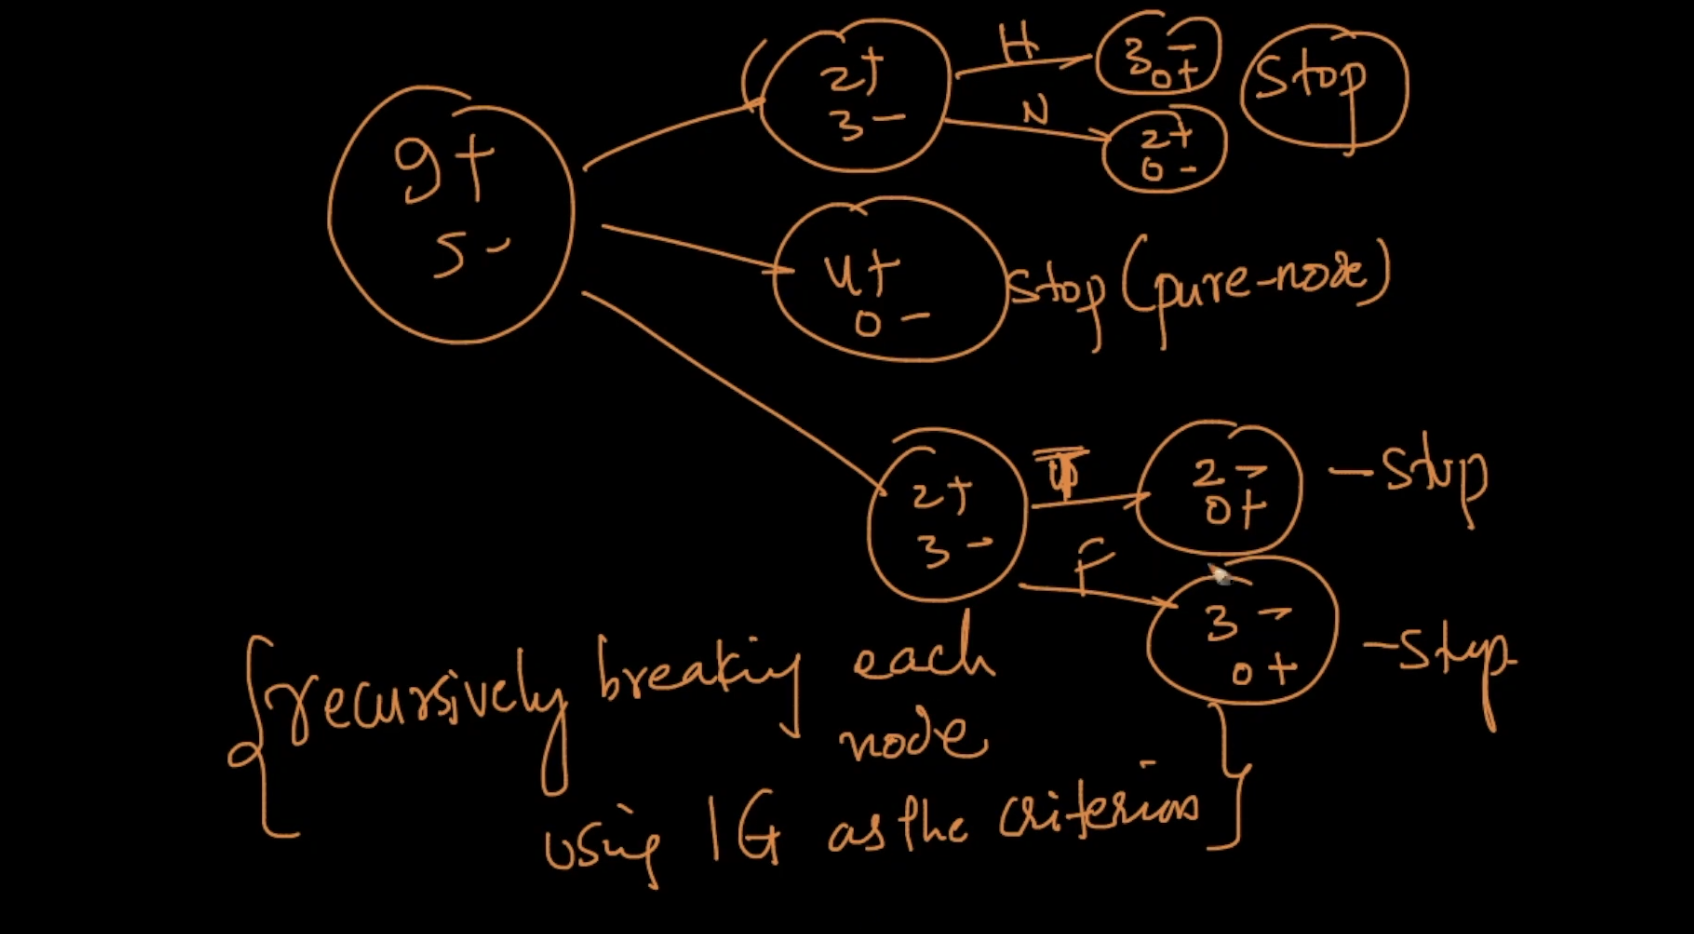 9+
5-
2+
3-
H
3-
0+
Stop
N
2+
0-
4+
0-
stop (pure-node)
2+
3-
T
2-
0+
-stop
F
3-
0+
-stop
{recursively breaking each
node
using IG as the criterion}